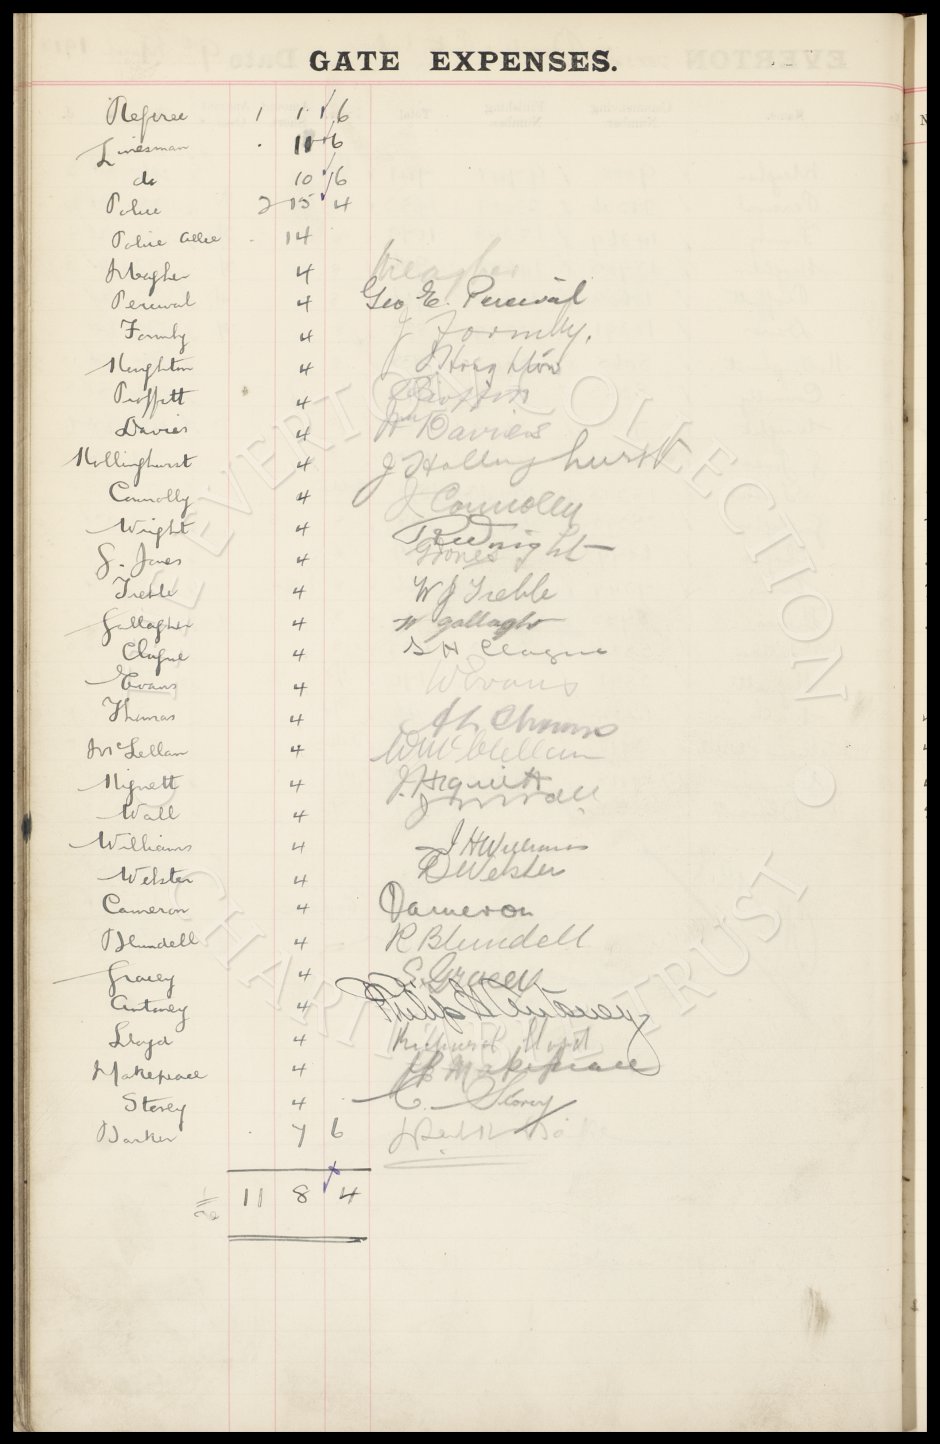 GATE EXPENSES.
Referee 1 1 6
Linesman . 11 6
do 10 6
Police 2 15 4
Police Allce . 14
Meagher 4 Meagher
Percival 4 Geo E. Percival
Formby 4 J Formby.
Houghton 4 J Houghton
Proffitt 4
Davies 4 Wm Davies
Hollinghurst 4 J Hollinghurst
Connolly 4 J Connolly
Wright 4
G. Jones 4 G Jones
Treble 4 W J Treble
Gallagher 4 W gallagher
Clague 4 G H Clague
Evans 4 W Evans
Thomas 4
McLellan 4 W McClellan
Hignett 4 J. Hignett
Wall 4 J Wall
Williams 4 J H Williams
Webster 4 Webster
Cameron 4 Cameron
Blundell 4 R Blundell
Gracey 4 E. Gracey
Antoney 4 Philip Antoney
Lloyd 4 Richard Lloyd
Makepeace 4 H Makepeace
Storey 4 C. Storey
Barker . 7 6
11 8 4
THE EVERTON COLLECTION CHARITABLE TRUST